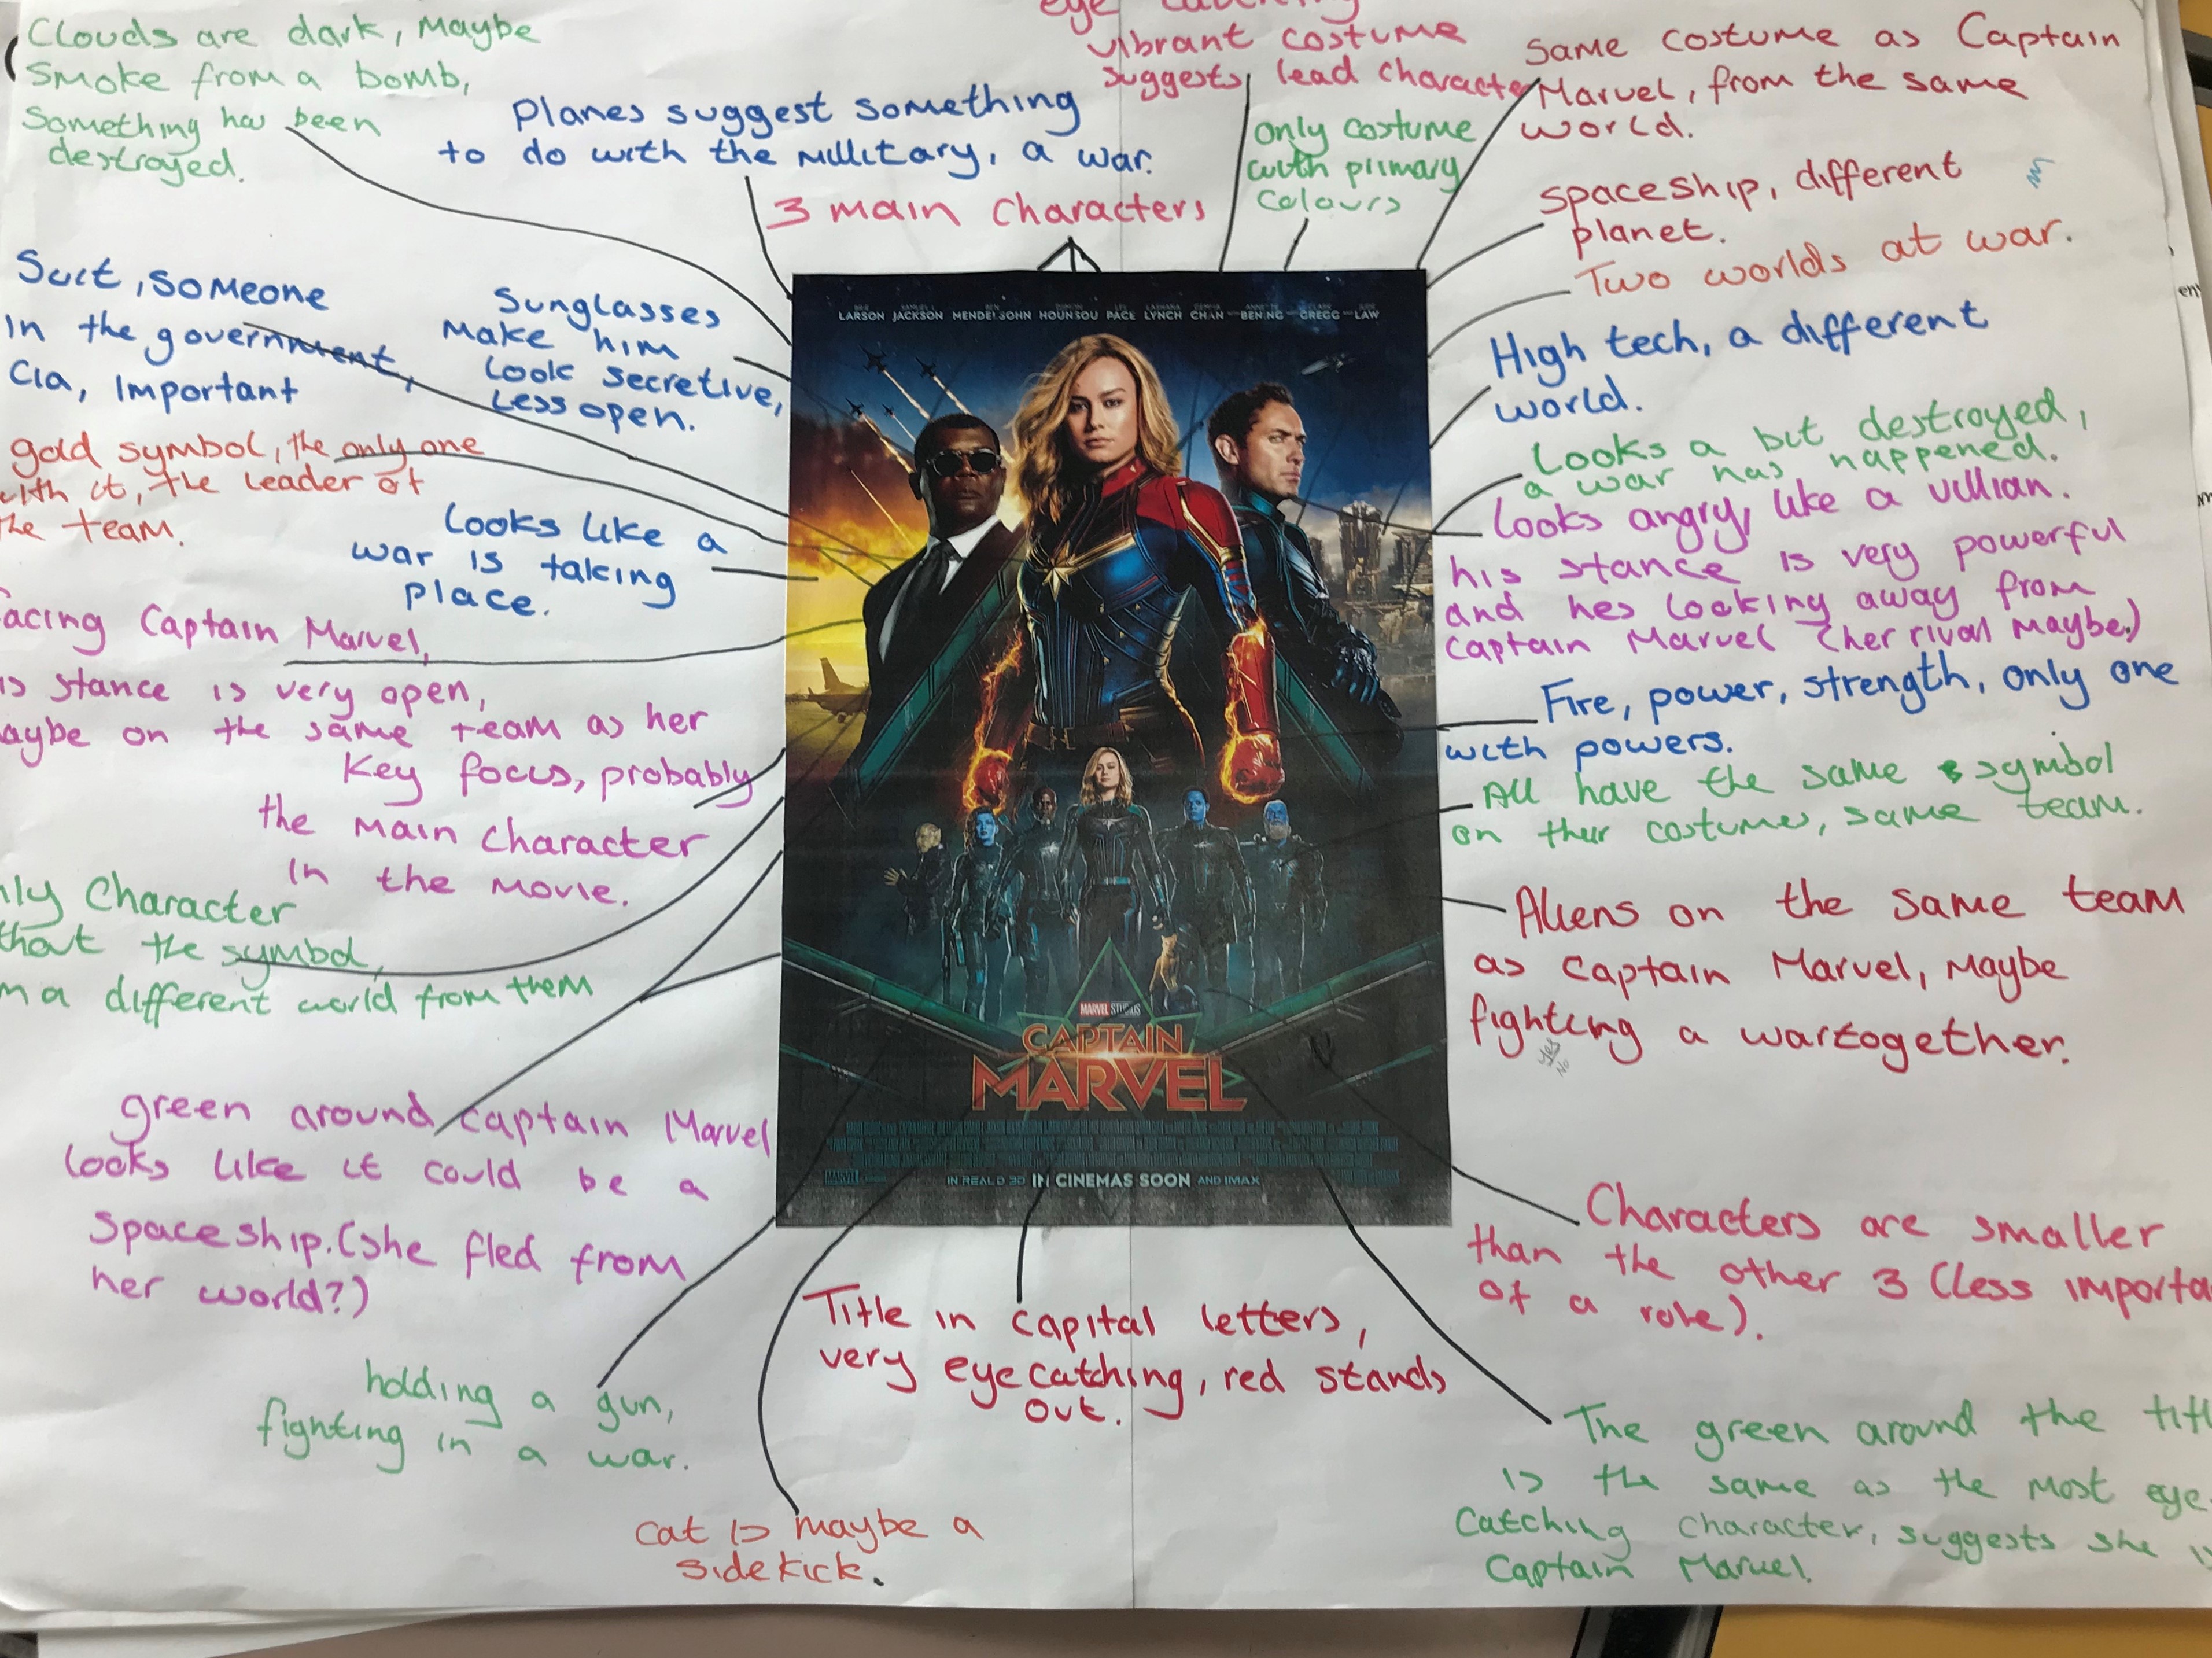 Clouds are dark, Maybe
Smoke from a bomb,
Something has been
destroyed.
Planes suggest something
to do with the Millitary, a war.
3 main characters
vibrant costume
suggests lead character
only costume
with primary
colours
Same costume as Captain
Marvel, from the same
world.
Spaceship, different
planet.
Two worlds at war.
High tech, a different
world.
Looks a bit destroyed,
a war has happened.
Looks angry, like a villian.
his stance is very powerful
and hes looking away from
Captain Marvel (her rival maybe)
Fire, power, strength, only one
with powers.
All have the same symbol
on their costumes, same team.
Aliens on the same team
as Captain Marvel, Maybe
fighting a war together.
Yes
No
Characters are smaller
than the other 3 (less importa
of a role).
The green around the titl
is the same as the most eye
Catching character, suggests she is
Captain Marvel.
Suit, someone
in the government,
Cia, important
Sunglasses
Make him
look secretive,
less open.
gold symbol, the only one
with it, the leader of
the team.
Looks like a
war is taking
place.
facing Captain Marvel,
is stance is very open,
aybe on the same team as her
Key focus, probably
the main character
in the movie.
nly Character
thout the symbol,
m a different world from them
green around captain Marvel
looks like it could be a
Spaceship. (she fled from
her world?)
holding a gun,
fighting in a war.
cat is maybe a
sidekick.
Title in capital letters,
very eye catching, red stands
out.
LARSON JACKSON MENDELSOHN HOUNSOU PACE LYNCH CHAN BENING GREGG LAW
MARVEL STUDIOS
CAPTAIN
MARVEL
MARVEL
IN REAL D 3D IN CINEMAS SOON AND IMAX